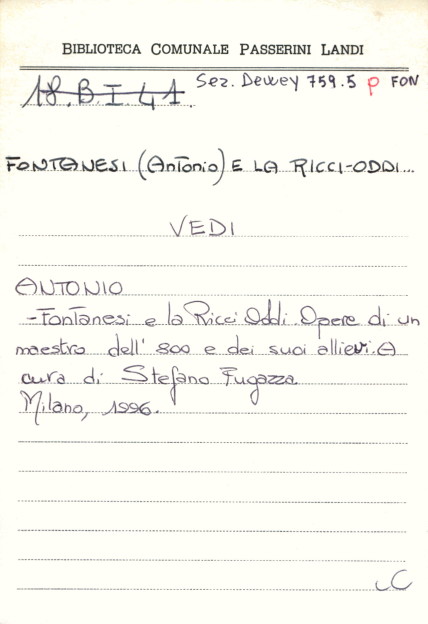 BIBLIOTECA COMUNALE PASSERINI LANDI
18.B.I.41. Sez. Dewey 759.5 p FON
FONTANESI (Antonio) E LA RICCI-ODDI...
VEDI
ANTONIO
-Fontanesi e la Ricci Oddi. Opere di un
maestro dell' 800 e dei suoi allievi. A
cura di Stefano Fugazza.
Milano, 1996.